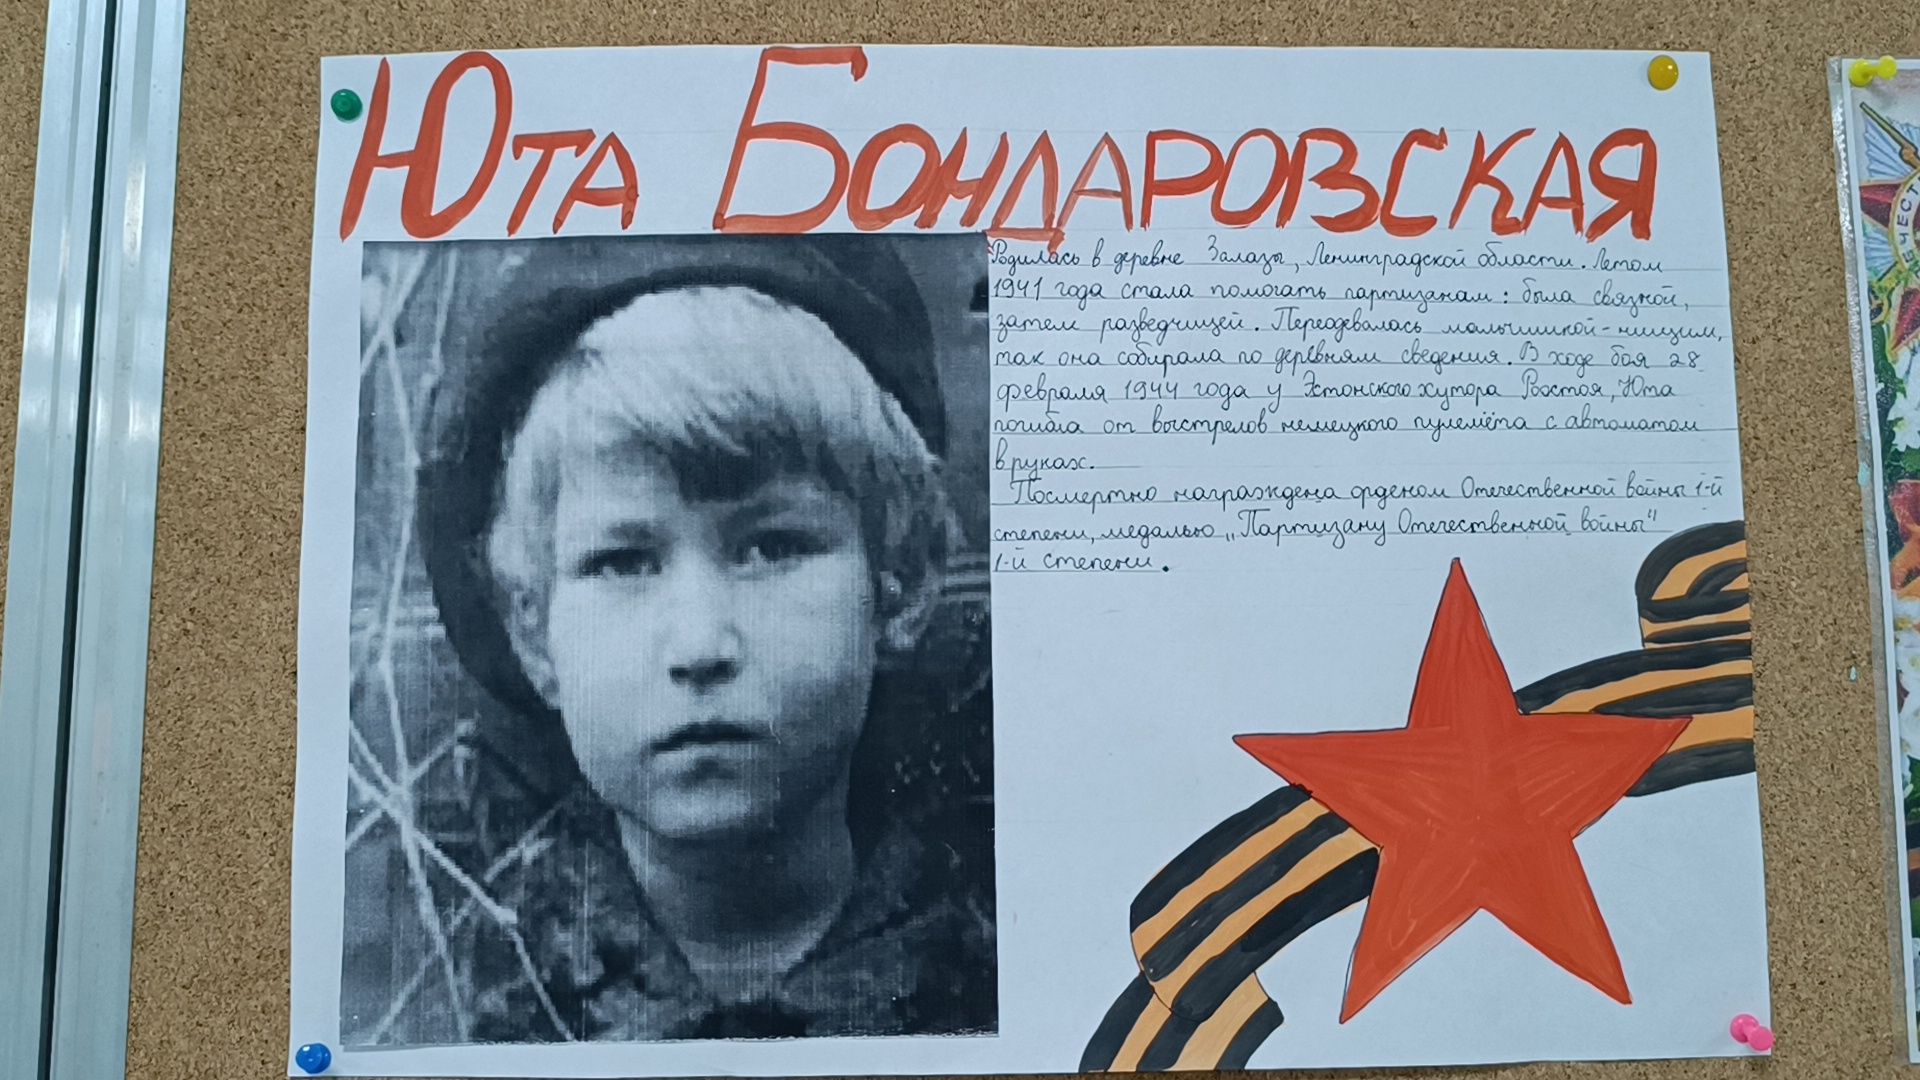 Юта Бондаровская
Родилась в деревне Залазы, Ленинградской области. Летом
1941 года стала помогать партизанам: была связной,
затем разведчицей. Переодевалась мальчишкой-нищим,
так она собирала по деревням сведения. В ходе боя 28
февраля 1944 года у Эстонского хутора Ростоя, Юта
погибла от выстрелов немецкого пулемёта с автоматом
в руках.
Посмертно награждена орденом Отечественной войны 1-й
степени, медалью „Партизану Отечественной войны"
1-й степени.
ЧЕСТ